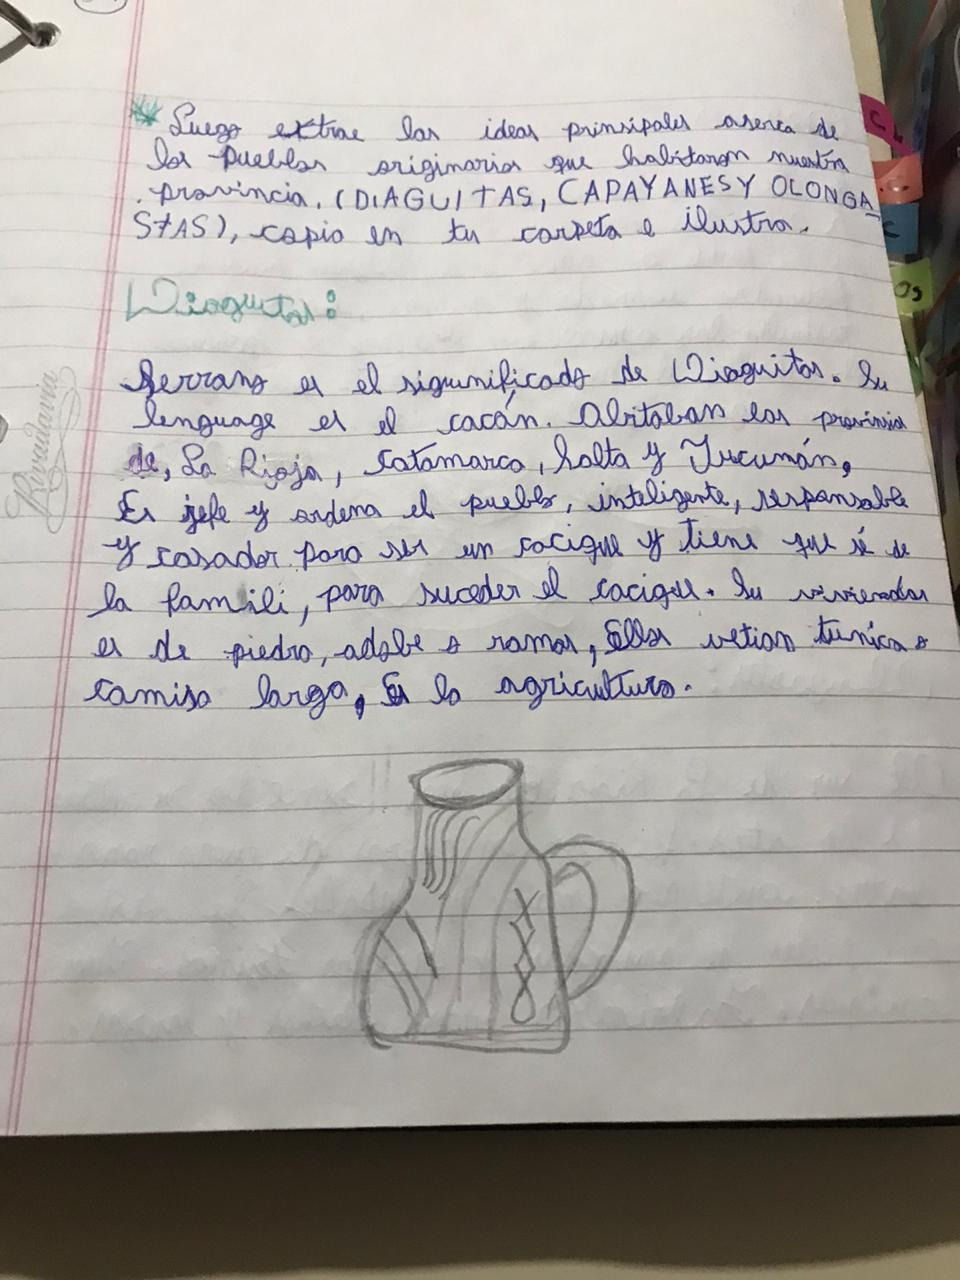 Luego extrae las ideas prinsipales aserca de
los pueblos originarios que habitaron nuestra
provincia, (DIAGUITAS, CAPAYANES Y OLONGA_
STAS), copia en tu carpeta e ilustra.
Diaguitas:
Serrano es el sigunificado de Diaguitas. Su
lenguage es el cacán. Abitaban las provinias
de, La Rioja, Catamarca, Salta y Tucumán,
Es jefe y ordena el pueblo, inteligente, responsable
y casador para ser un cacique y tiene que sé de
la famili, para suceder el cacique. Su viviendas
es de piedra, adobe o ramas, Ellos vetian tunica o
camisa larga, Es la agricultura.
Rivadavia
C
OS